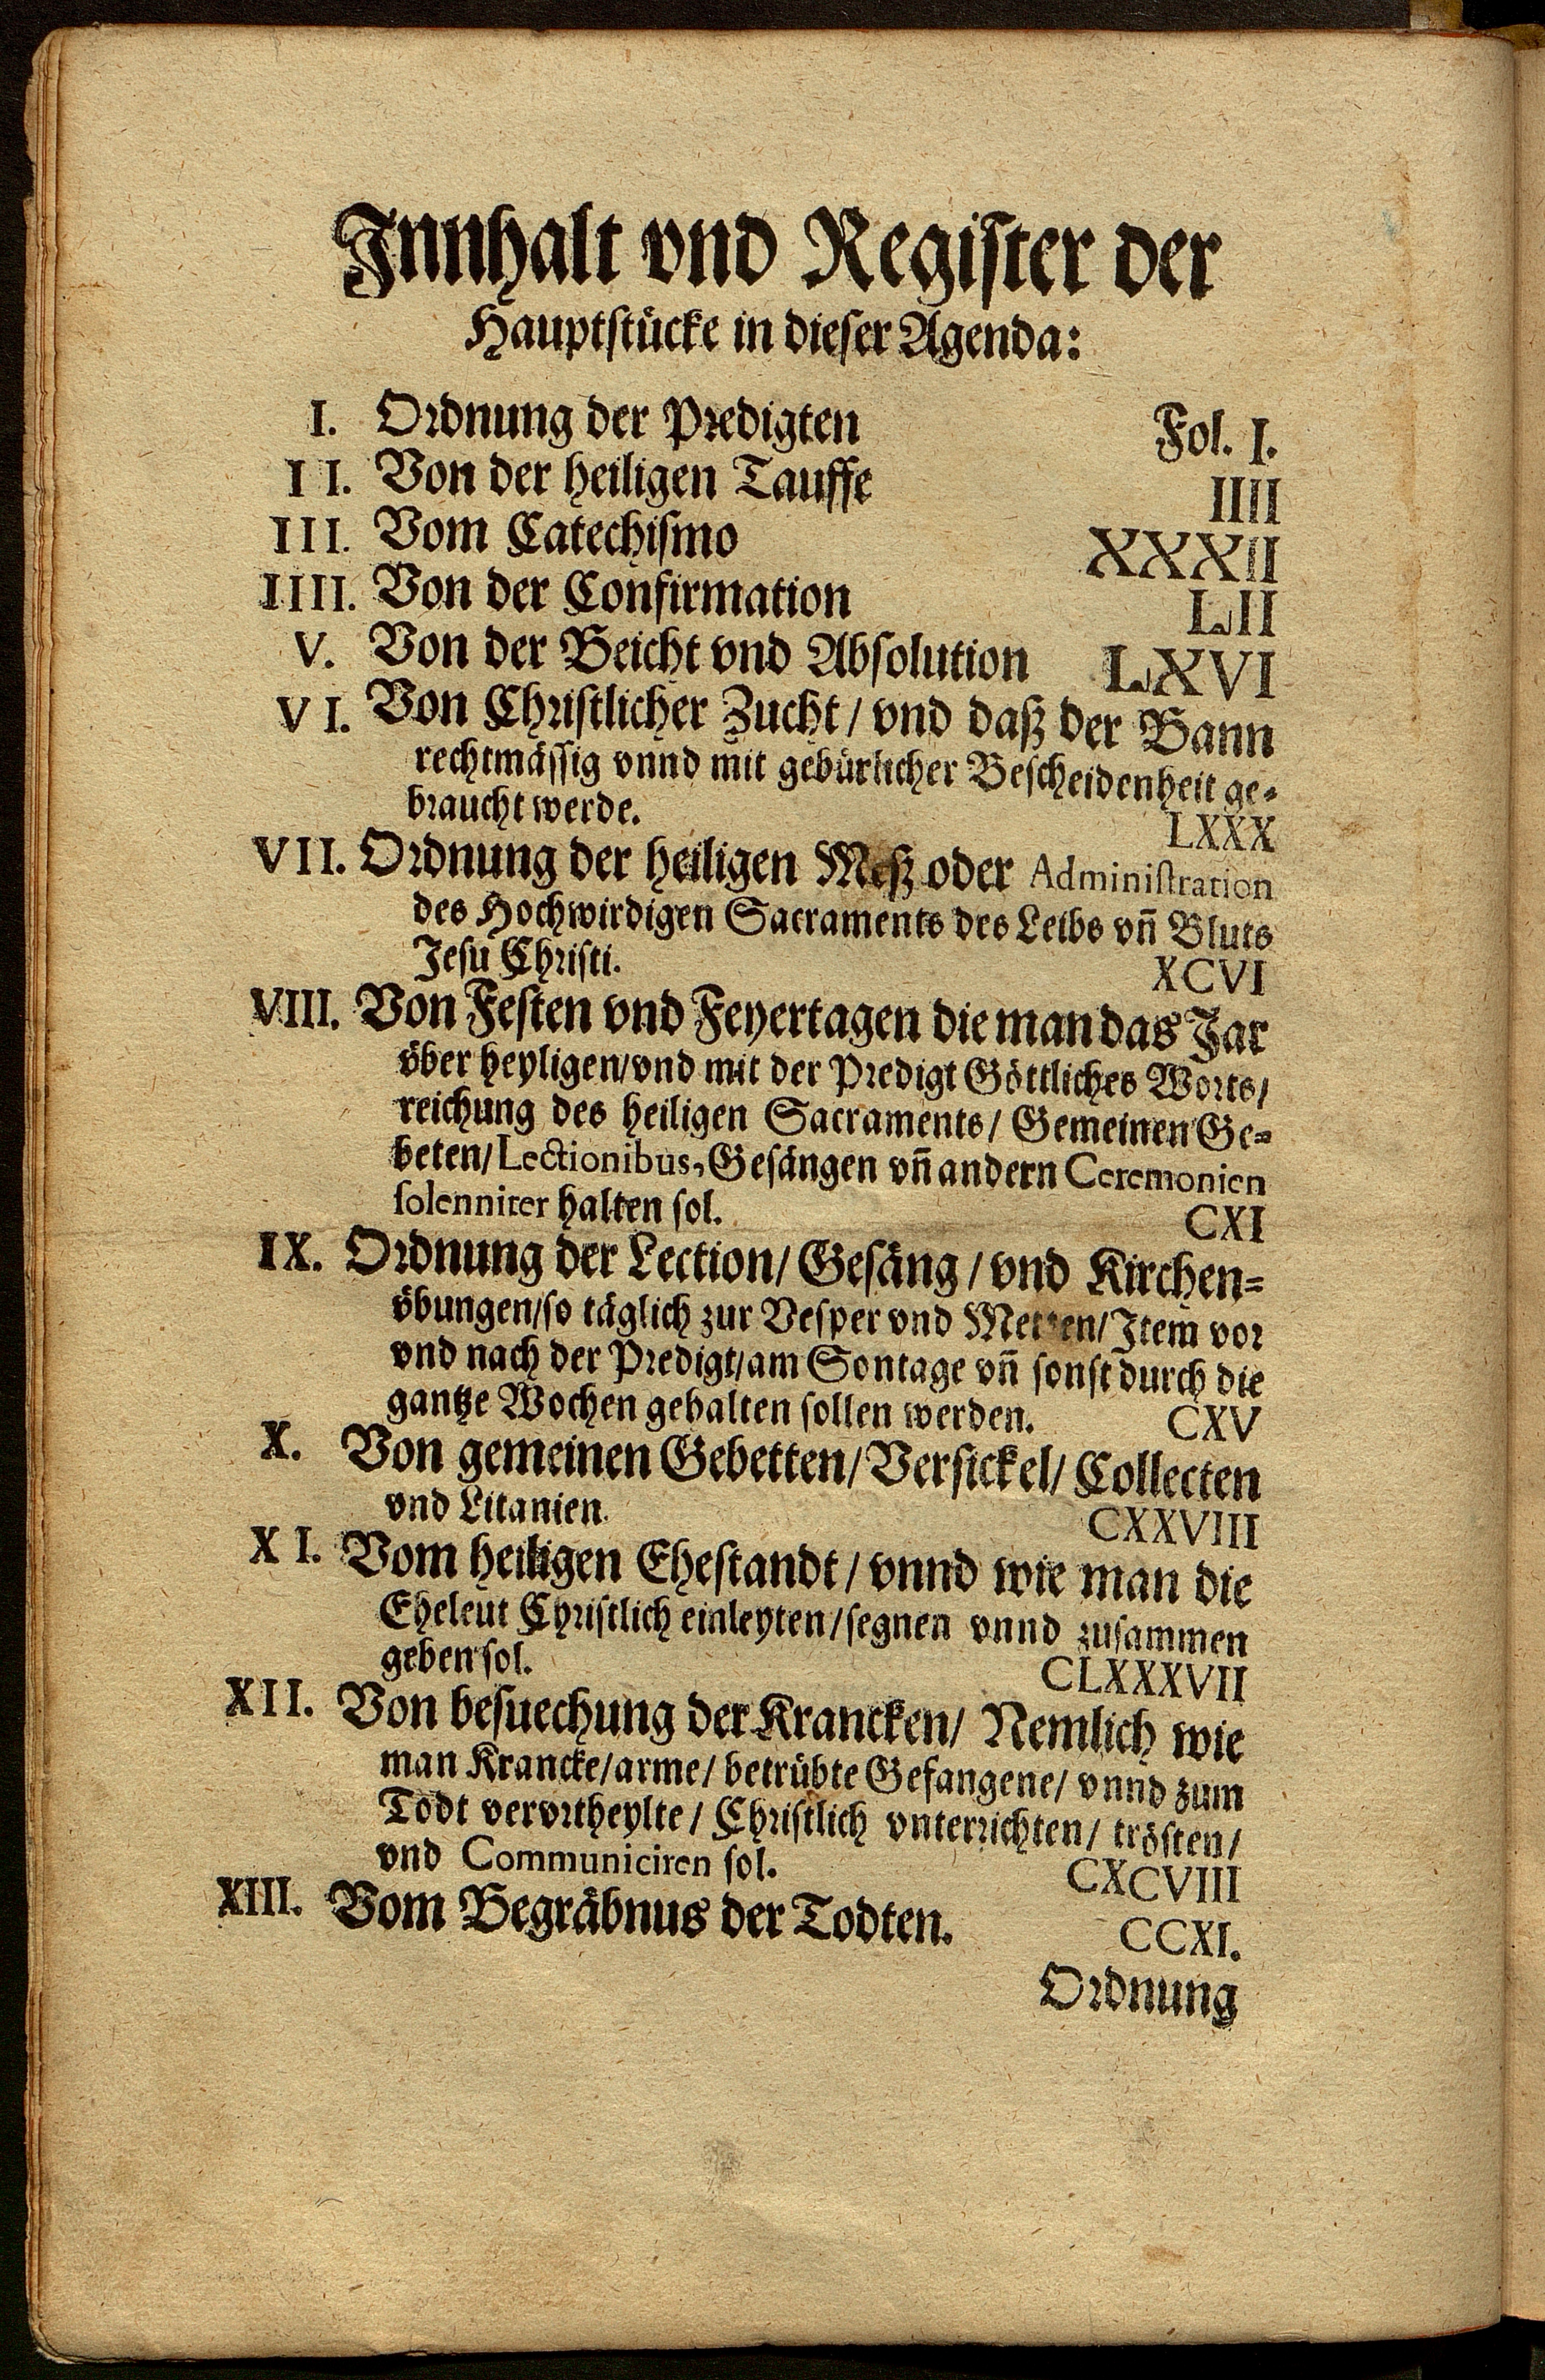 Innhalt vnd Register der
Hauptstücke in dieser Agenda:
I. Ordnung der Predigten Fol. I.
II. Von der heiligen Tauffe IIII
III. Vom Catechismo XXXII
IIII. Von der Confirmation LII
V. Von der Beicht vnd Absolution LXVI
VI. Von Christlicher Zucht / vnd daß der Bann
rechtmässig vnnd mit gebürlicher Bescheidenheit ge-
braucht werde. LXXX
VII. Ordnung der heiligen Meß oder Administration
des Hochwirdigen Sacraments des Leibs vn̄ Bluts
Jesu Christi. XCVI
VIII. Von Festen vnd Feyertagen die man das Jar
vͤber heyligen/vnd mit der Predigt Göttliches Worts/
reichung des heiligen Sacraments/ Gemeinen Ge-
beten/Lectionibus, Gesängen vn̄ andern Ceremonien
solenniter halten sol. CXI
IX. Ordnung der Lection/ Gesäng / vnd Kirchen-
vͤbungen/so täglich zur Vesper vnd Metten/Item vor
vnd nach der Predigt/am Sontage vn̄ sonst durch die
gantze Wochen gehalten sollen werden. CXV
X. Von gemeinen Gebetten/Versickel/ Collecten
vnd Litanien. CXXVIII
XI. Vom heiligen Ehestandt / vnnd wie man die
Eheleut Christlich einleyten/segnen vnnd zusammen
geben sol. CLXXXVII
XII. Von besuechung der Krancken/ Nemlich wie
man Krancke/arme/ betrübte Gefangene/ vnnd zum
Todt vervrtheylte / Christlich vnterrichten/ trösten/
vnd Communiciren sol. CXCVIII
XIII. Vom Begräbnus der Todten. CCXI.
Ordnung